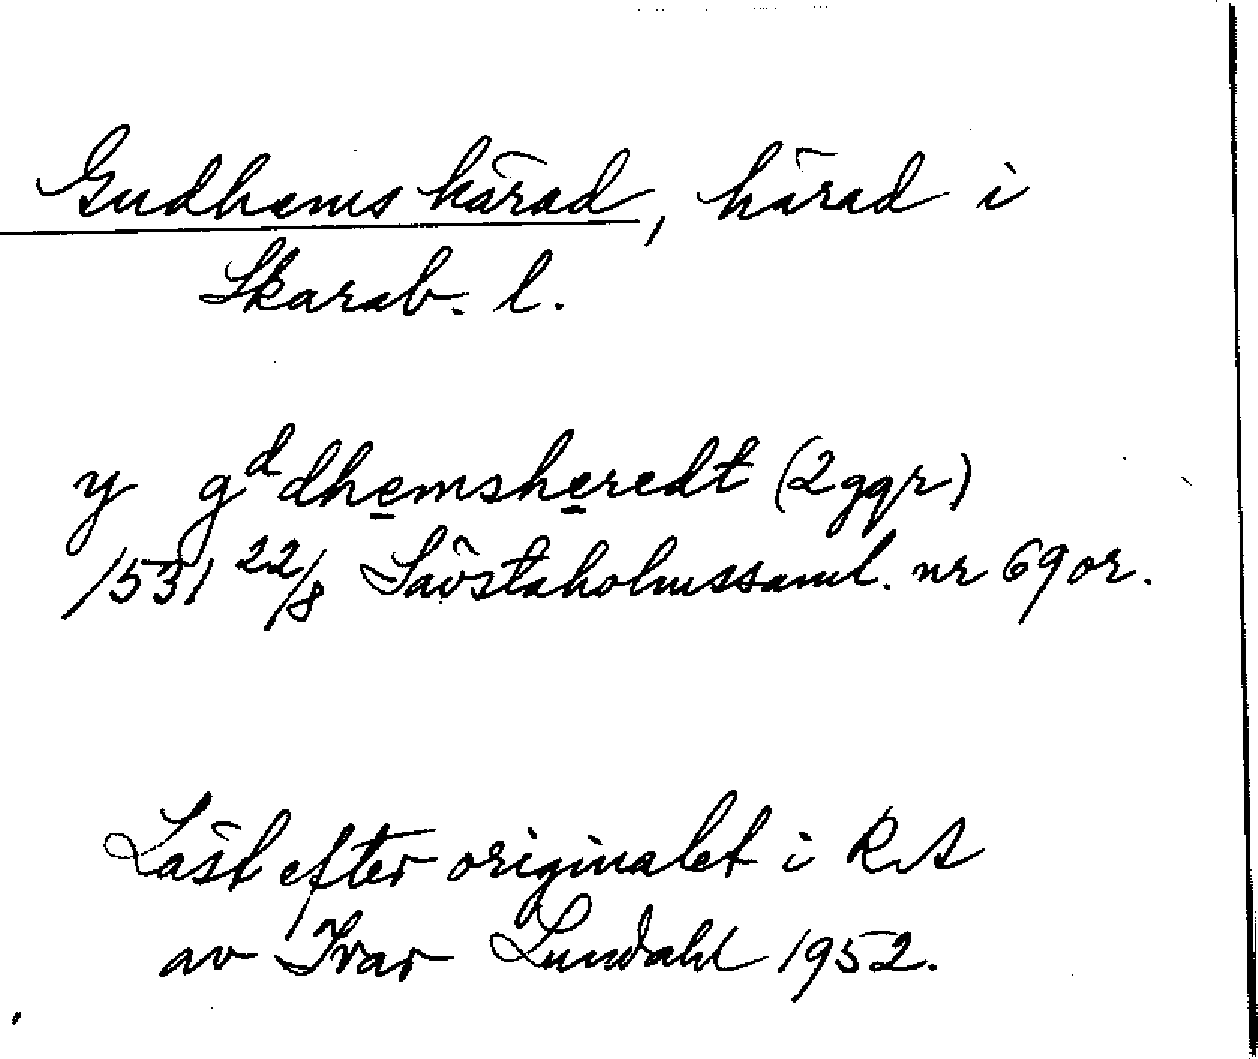 Gudhems härad, härad i
Skarab. l.
y gddhemsheredt (2 ggr)
1531 22/8 Sävstaholmssaml. nr 69 or.
Läst efter originalet i RA
av Ivar Lundahl 1952.